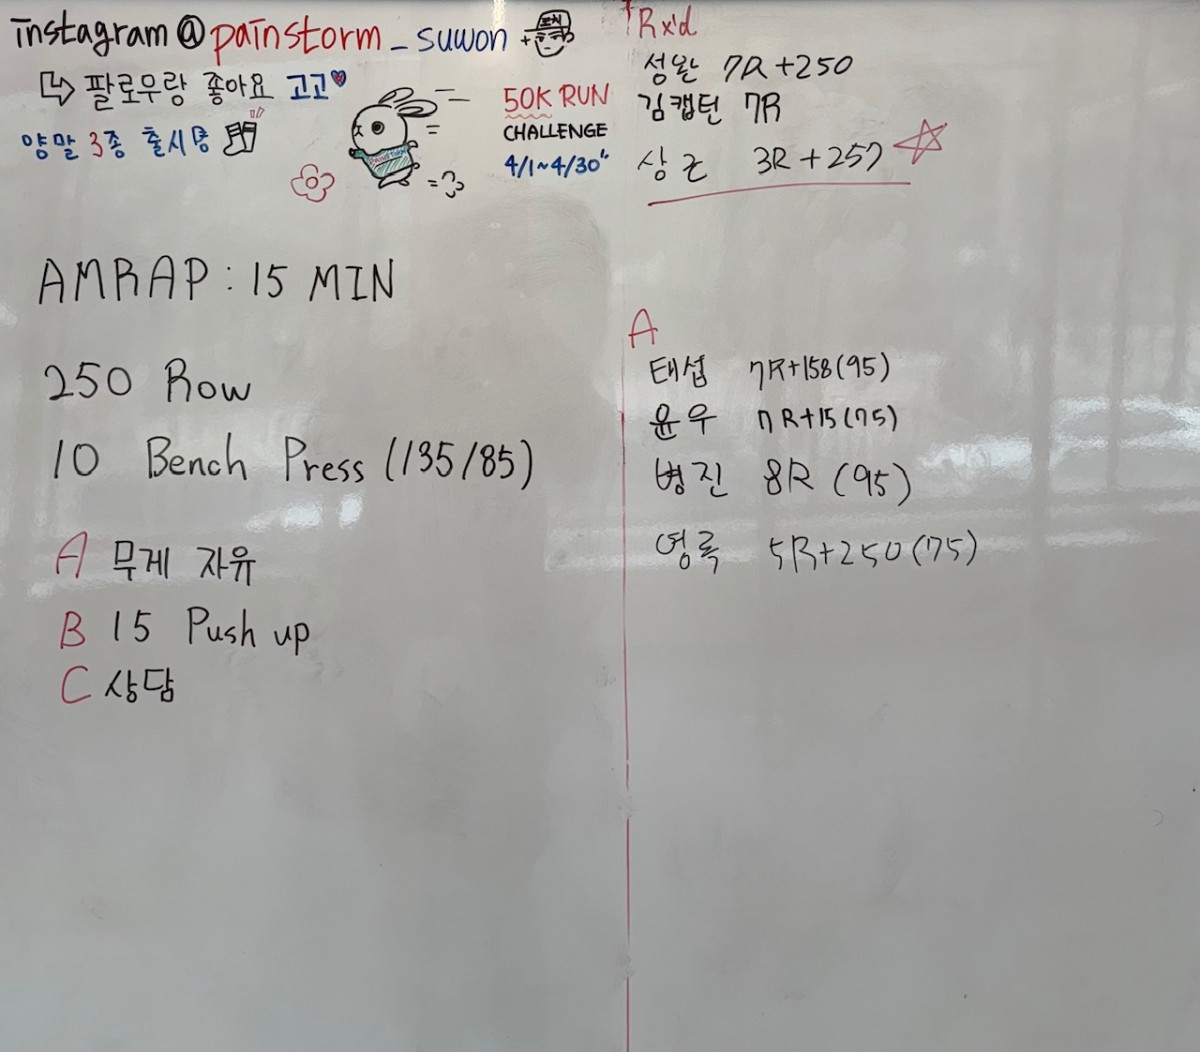 instagram@painstorm_suwon
팔로우랑 좋아요 고고
양말 3종 출시
50K RUN
CHALLENGE
4/1~4/30"
AMRAP : 15 MIN
250 Row
10 Bench Press (135/85)
A 무게 자유
B 15 Push up
C 상담
Rx'd
성완 7R+250
김캡턴 7R
상근 3R+257
A
태섭 7R+158(95)
윤우 7R+15(75)
병진 8R (95)
영록 5R+250(75)